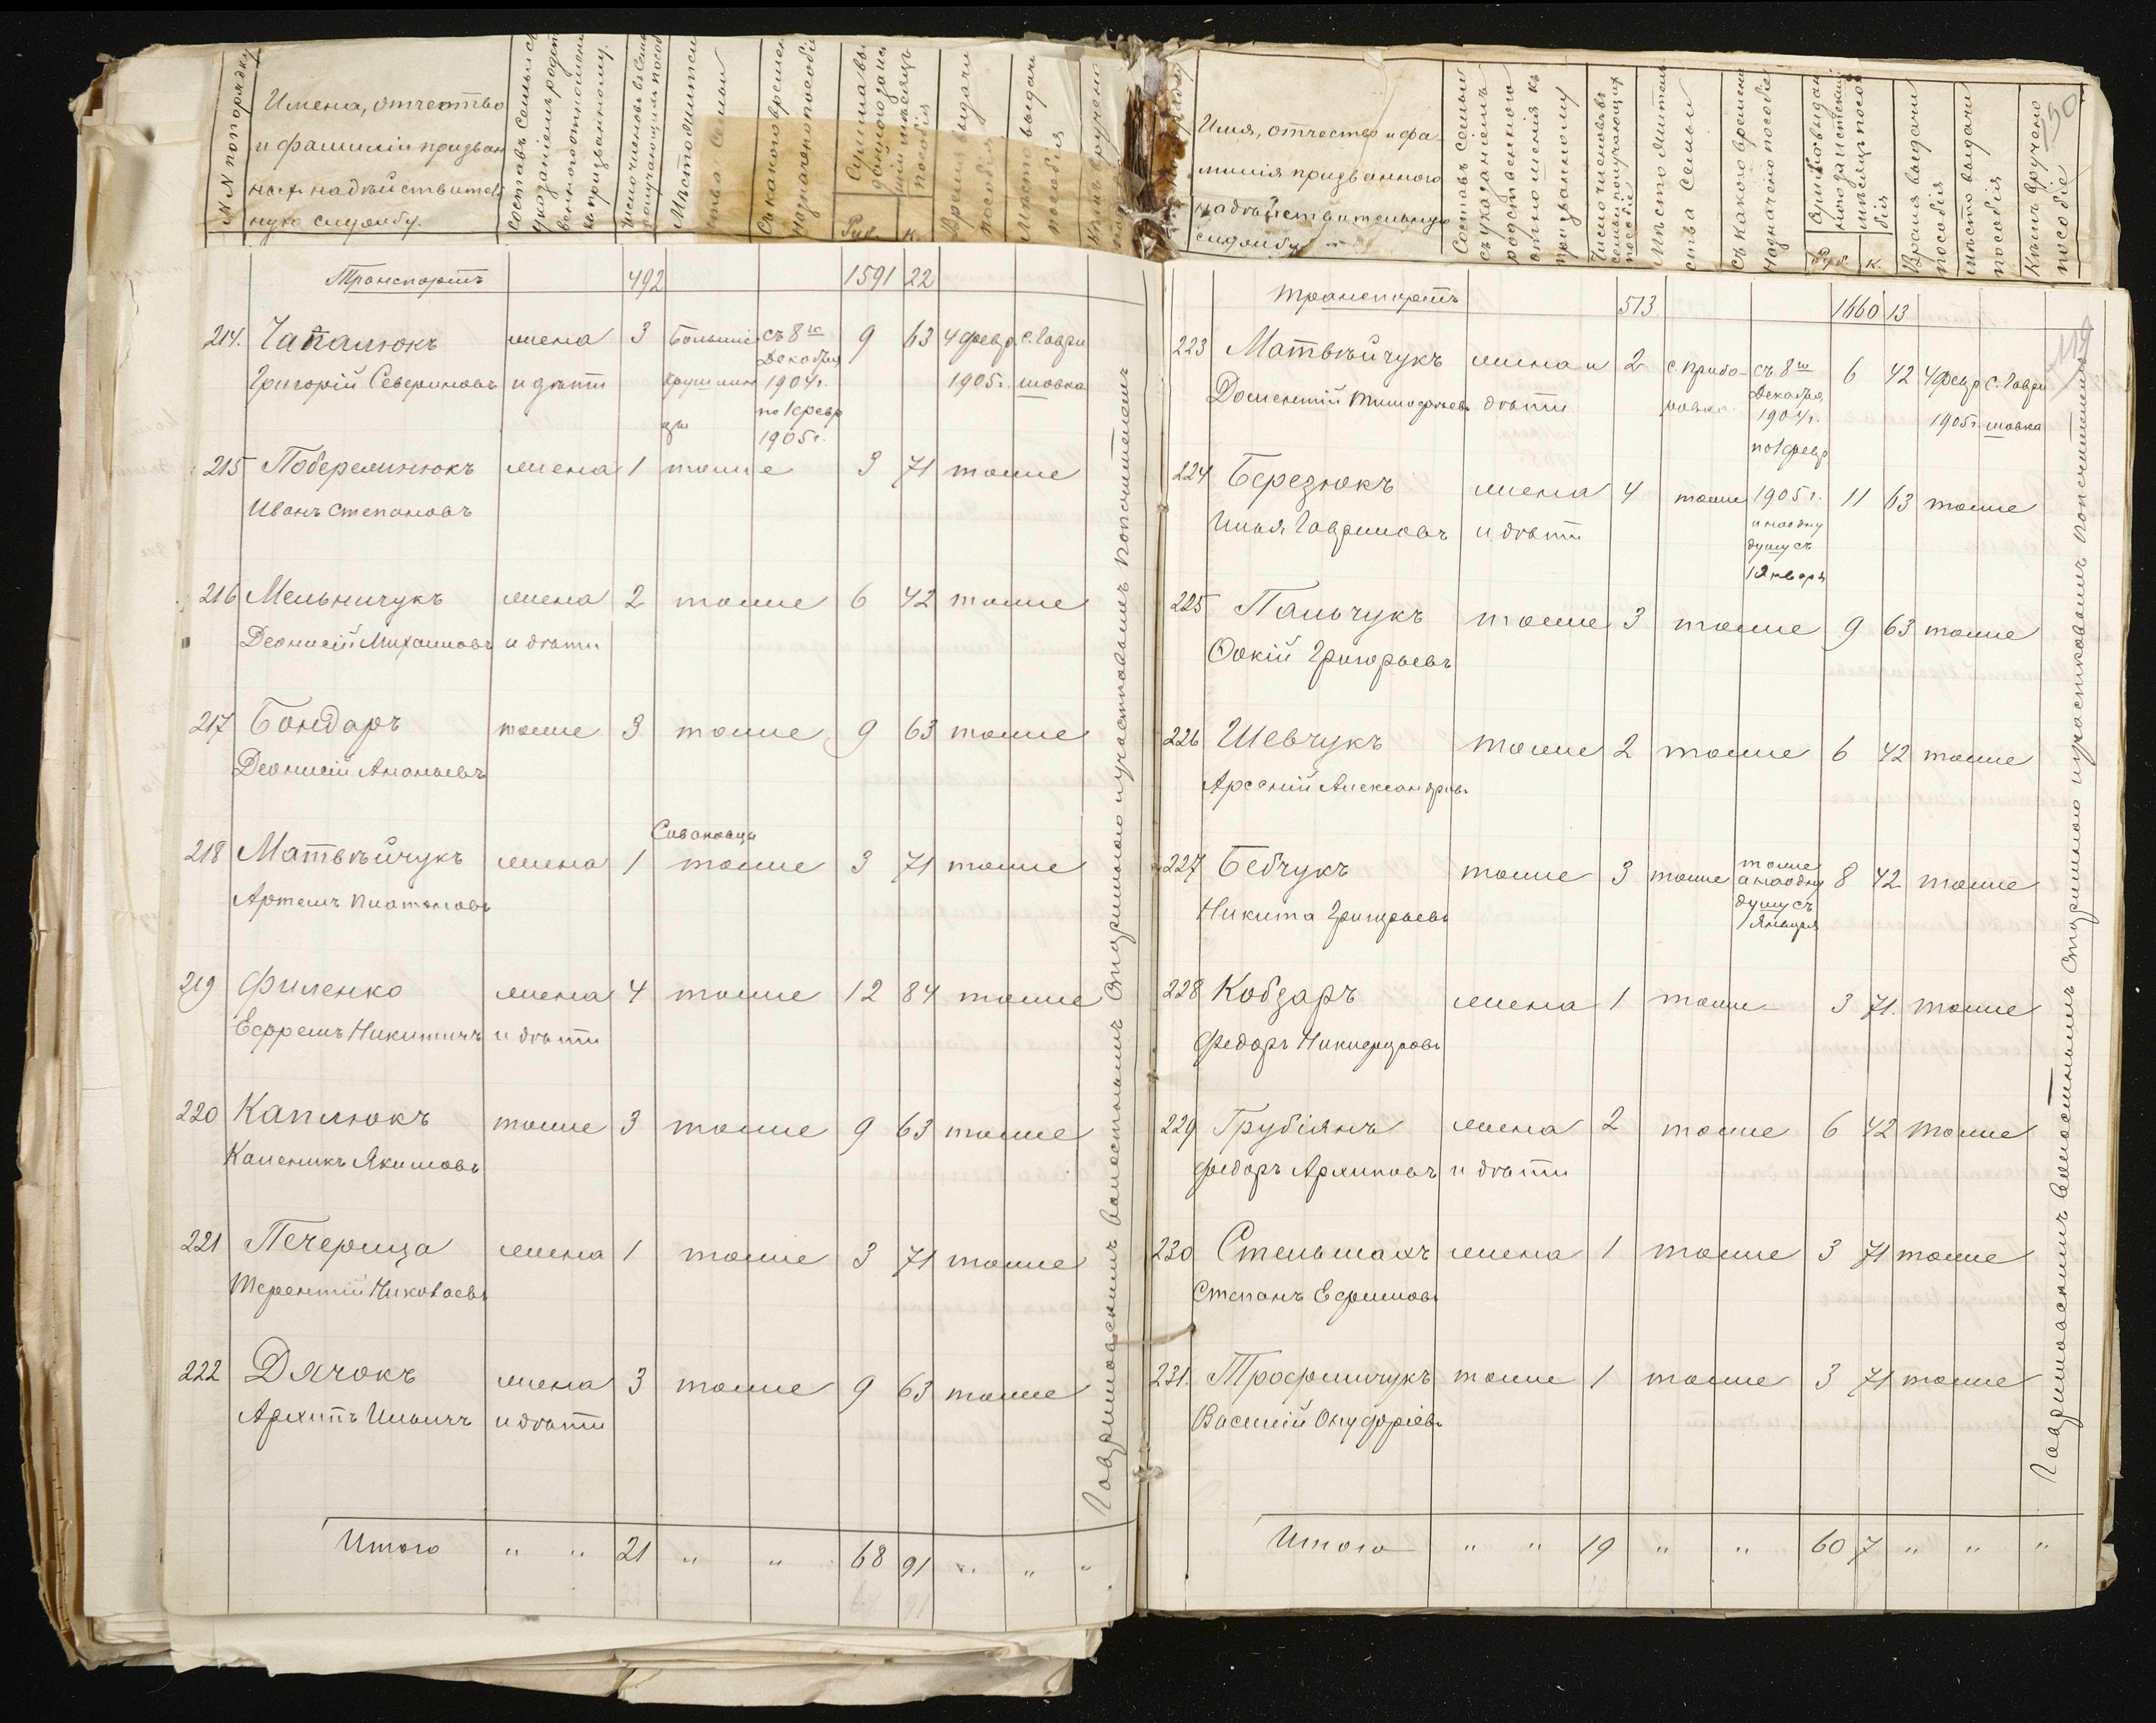 №№ по порядку
Имена, отчество
и фамиліи призван
ных на действитель
ную службу.
Составъ семьи съ
указаніемъ родст
веннаго отношенія
къ призванному.
Число членовъ въ семье
получающихъ пособ
Место жительства семьи
Съ какого времени
назначено пособіе
Сумма вы
данного за истек
шій месяцъ
пособія
Руб. к.
Время выдачи
пособія
Место выдачи
пособія
Кемъ вручено
Транспортъ 492 1591 22
214. Чапалюкъ жена 3 Большіе съ 8го 9 63 4 февр. с. Гаври
Декабря
Григорій Севериновъ и дети Крушлин 1904 г. 1905 г. шовка
цы по 1 февр
1905 г.
215 Побережнюкъ жена 1 тоже 3 71 тоже
Иванъ Степановъ
216 Мельничукъ жена 2 тоже 6 42 тоже
Деонисій Михаиловъ и дети
217 Бондарь тоже 3 тоже 9 63 тоже
Деонисій Ананьевъ
Саваковцы
218 Матвѣйчукъ жена 1 тоже 3 71 тоже
Артемъ Платоновъ
219 Филенко жена 4 тоже 12 84 тоже
Ефремъ Никитичъ и дѣти
220 Каплюкъ тоже 3 тоже 9 63 тоже
Каленикъ Якимовъ
221 Печерица жена 1 тоже 3 71 тоже
Терентій Николаевъ
222 Дячокъ жена 3 тоже 9 63 тоже
Архипъ Ильичъ и дѣти
Итого " " 21 " " 68 91 " " "
Гавришовскимъ Волостнымъ Старшиною и участковымъ попечителемъ
Имя, отчество и фа-
милія призванного
на действительную
службу
Составъ семьи
съ указаніемъ
родственного
отношенія къ
призванному
Число членовъ
семьи получающихъ
пособіе
Место жительства семьи
Съ какого времени
назначено пособіе
Сумма выдан
ного за истекшій
месяцъ пособія
Руб. к.
Время выдачи
пособія
Место выдачи
пособія
Кемъ вручено
пособіе
50
119
Транспортъ 513. 1660 13
223 Матвѣйчукъ жена и 2 с. Прибо- съ 8го 6 42 4 февр с. Гаври
Декабря
Доментій Тимофеевъ дѣти ровка 1904 г. 1905 г. шовка
по 1 февр
224 Березюкъ жена 4 тоже 1905 г. 11 63 тоже
Илья Гавриловъ и дѣти а на одну
душу съ
1 Января
225 Пальчукъ тоже 3 тоже 9 63 тоже
Фокій Григорьевъ
226 Шевчукъ тоже 2 тоже 6 42 тоже
Арсеній Александровъ
227 Бебчукъ тоже 3 тоже тоже 8 42 тоже
а на одну
Никита Григорьевъ душу съ
1 Января
228 Кобзарь жена 1 тоже 3 71. тоже
Федоръ Никифоровъ
229 Грубіянъ жена 2 тоже 6 42 тоже
Федоръ Архиповъ и дѣти
230 Стельмахъ жена 1 тоже 3 71 тоже
Степанъ Ефимовъ
231. Трофимчукъ тоже 1 тоже 3 71 тоже
Василій Онуфріевъ
Итого " " 19 " " 60 7 " " "
Гавришовскимъ Волостнымъ Старшиною и участковымъ попечителемъ